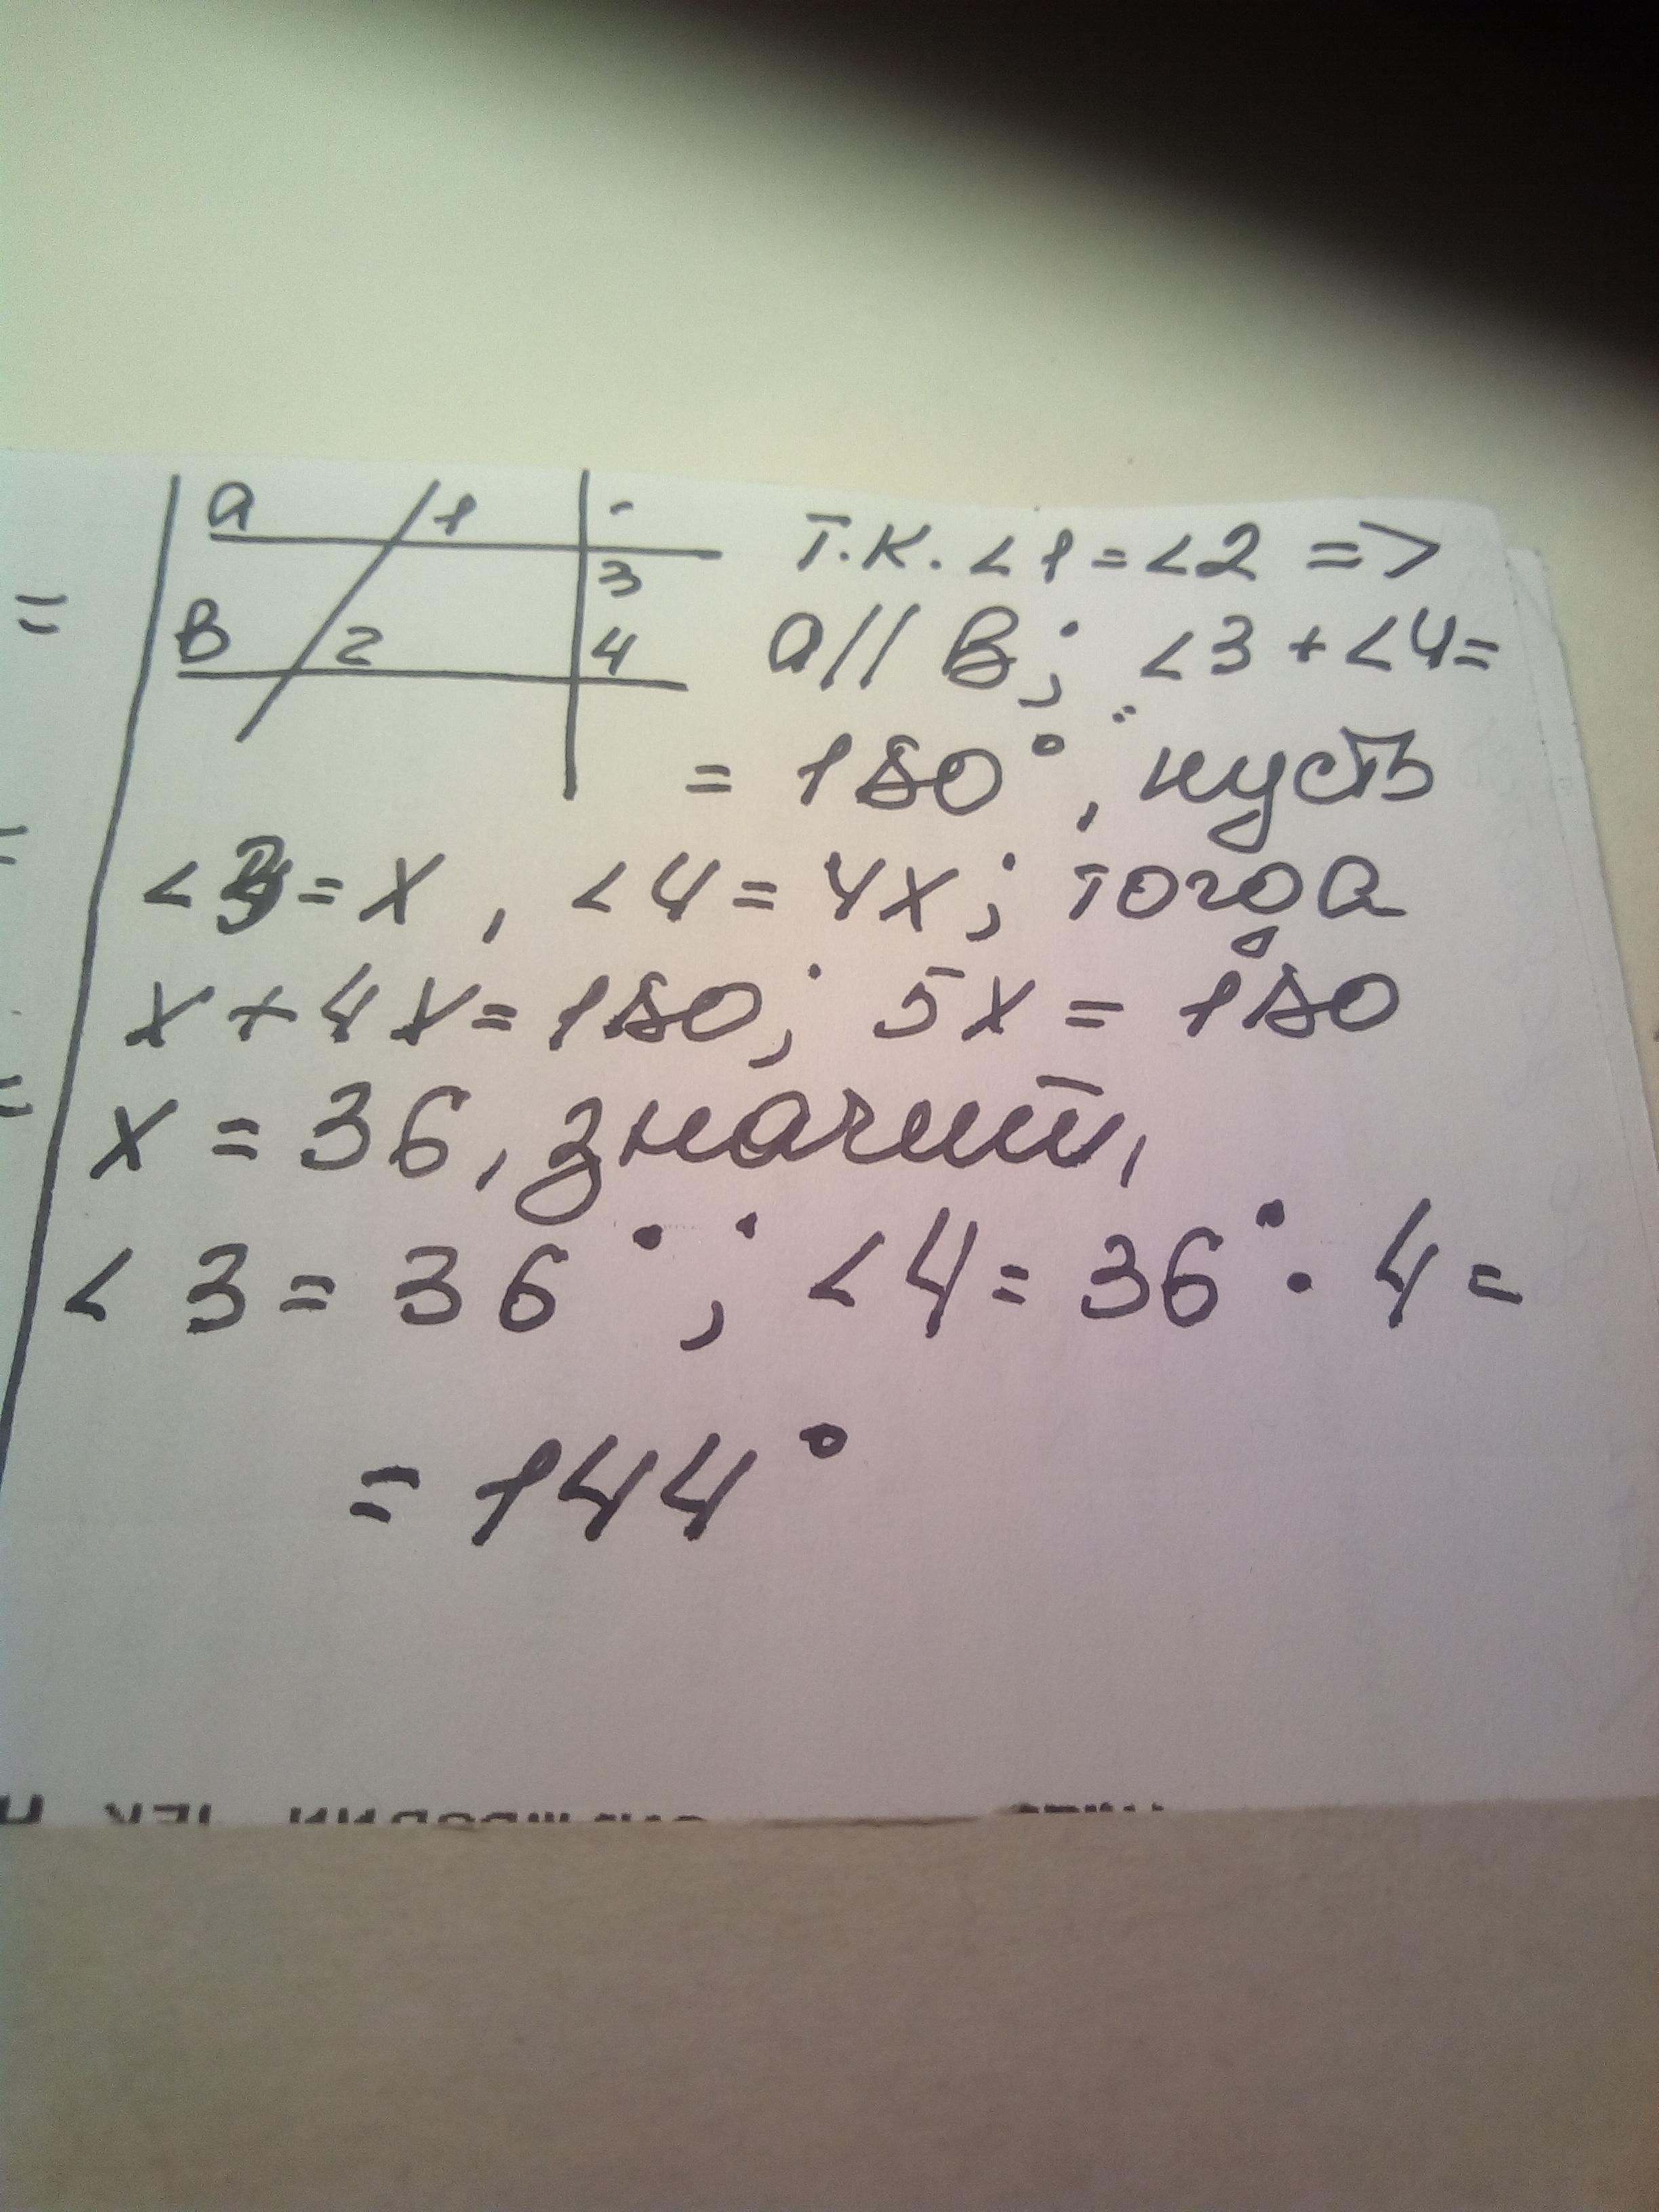 a 1
3
В 2 4
Т.К. <1=<2 =>
a//В; <3+<4=
= 180°, пусть
<3=х, <4=4х; тогда
х+4х=180; 5х=180
х=36, значит,
<3=36°; <4=36°·4=
=144°